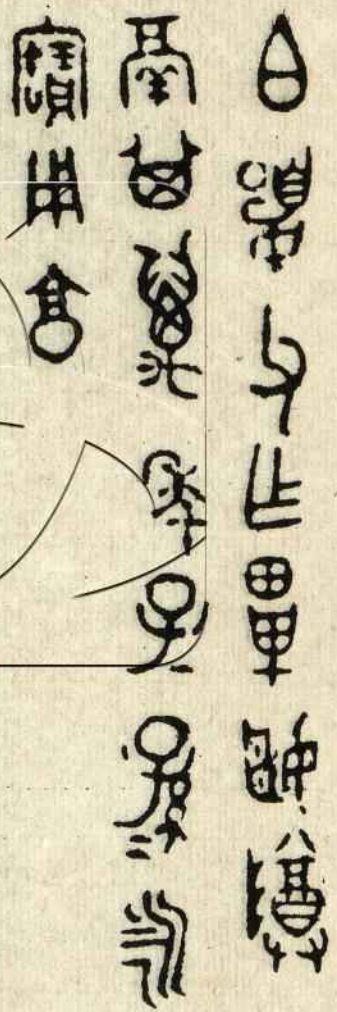 白夏父乍畢姬尊
鬲其萬年子=孫=永
寶用亯